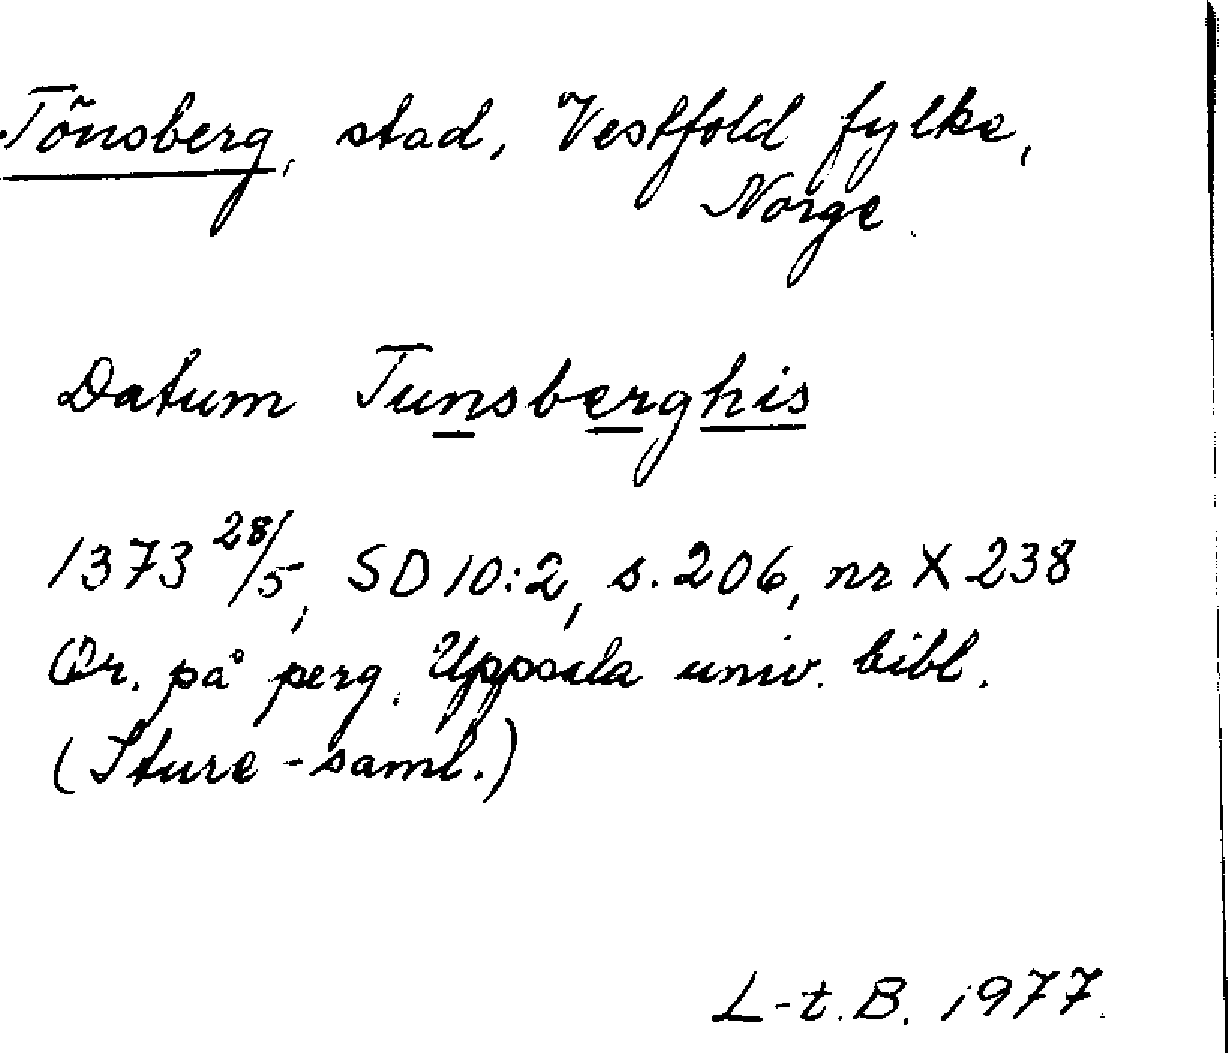 Tönsberg, stad, Vestfold fylke,
Norge.
Datum Tunsberghis
1373 28/5, SD 10:2, s. 206, nr X 238
Or. på perg. Uppsala univ. bibl.
(Sture-saml.)
L-t. B. 1977.